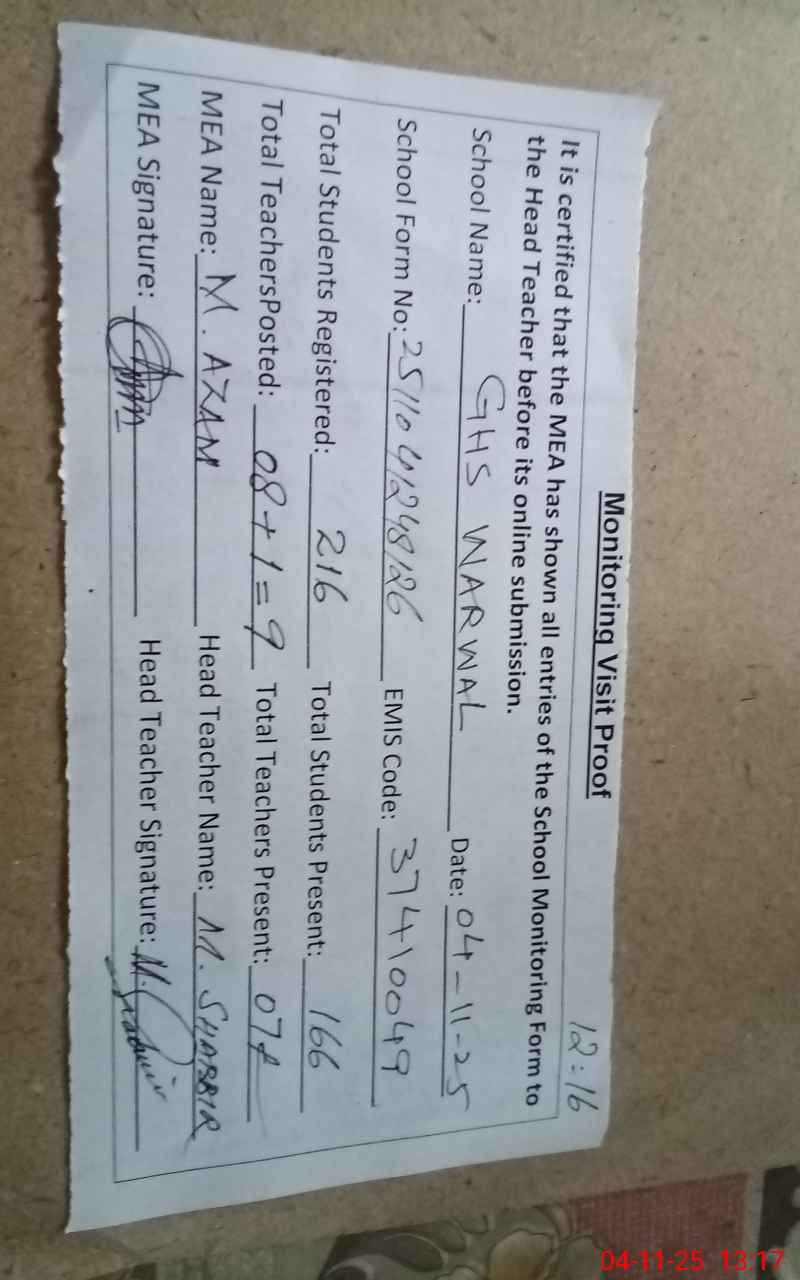 12:16
Monitoring Visit Proof
It is certified that the MEA has shown all entries of the School Monitoring Form to
the Head Teacher before its online submission.
School Name: GHS WARWAL Date: 04-11-25
School Form No: 2511041248126 EMIS Code: 37410049
Total Students Registered: 216 Total Students Present: 166
Total TeachersPosted: 08+1=9 Total Teachers Present: 07
MEA Name: M. AZAM Head Teacher Name: M. SHABBIR
MEA Signature: Head Teacher Signature: M.
04-11-25 13:17